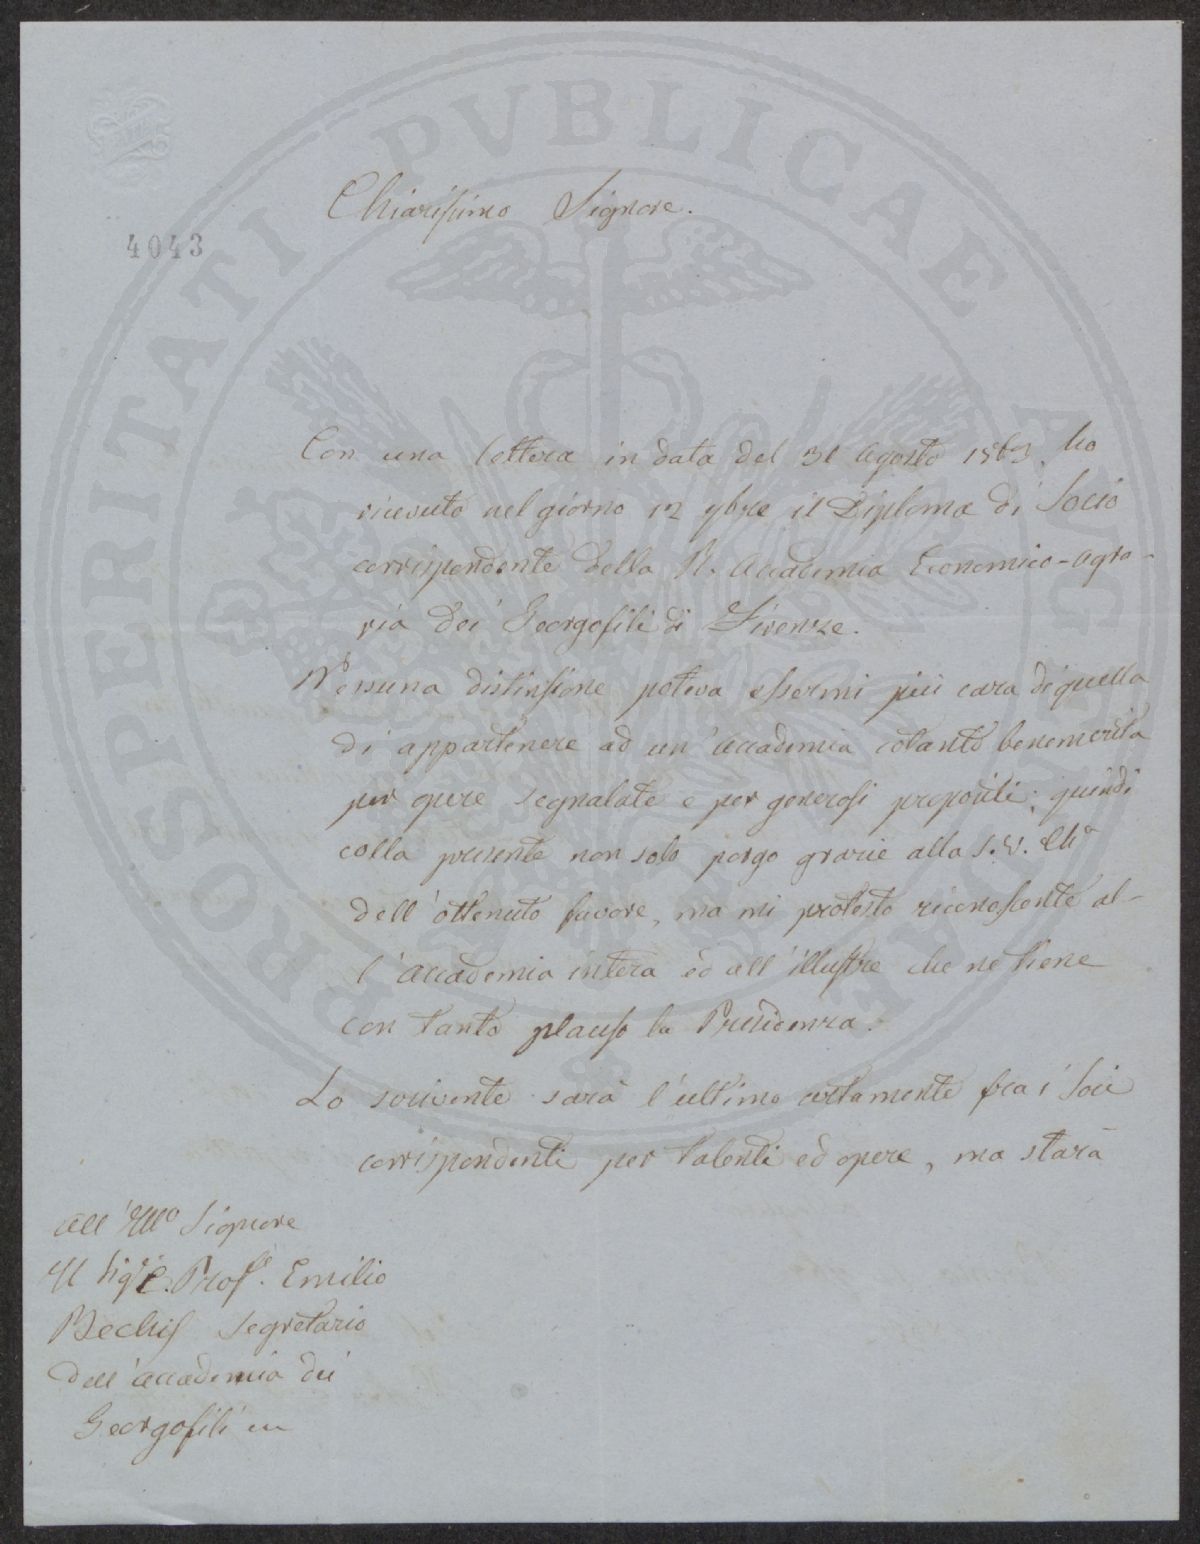 PROSPERITATI PVBLICAE AVGENDAE
4043
Chiarissimo Signore.
Con una lettera in data del 31 Agosto 1863 ho
ricevuto nel giorno 12 9bre il Diploma di Socio
corrispondente della R. Accademia Economico-Agra-
ria dei Georgofili di Firenze.
Nessuna distinsione poteva essermi più cara di quella
di appartenere ad un'Accademia cotanto benemerita
per opere segnalate e per generosi propositi; quindi
colla presente non solo porgo grazie alla S.V. Illa
dell'ottenuto favore, ma mi protesto riconoscente al-
l'Accademia intera ed all'illustre che ne tiene
con tanto plauso la Presidenza.
Lo scrivente sarà l'ultimo certamente fra i Soci
corrispondenti per talenti ed opere, ma starà
All'Illo Signore
Il Sigr C. Profe. Emilio
Bechis Segretario
dell'Accademia dei
Georgofili in